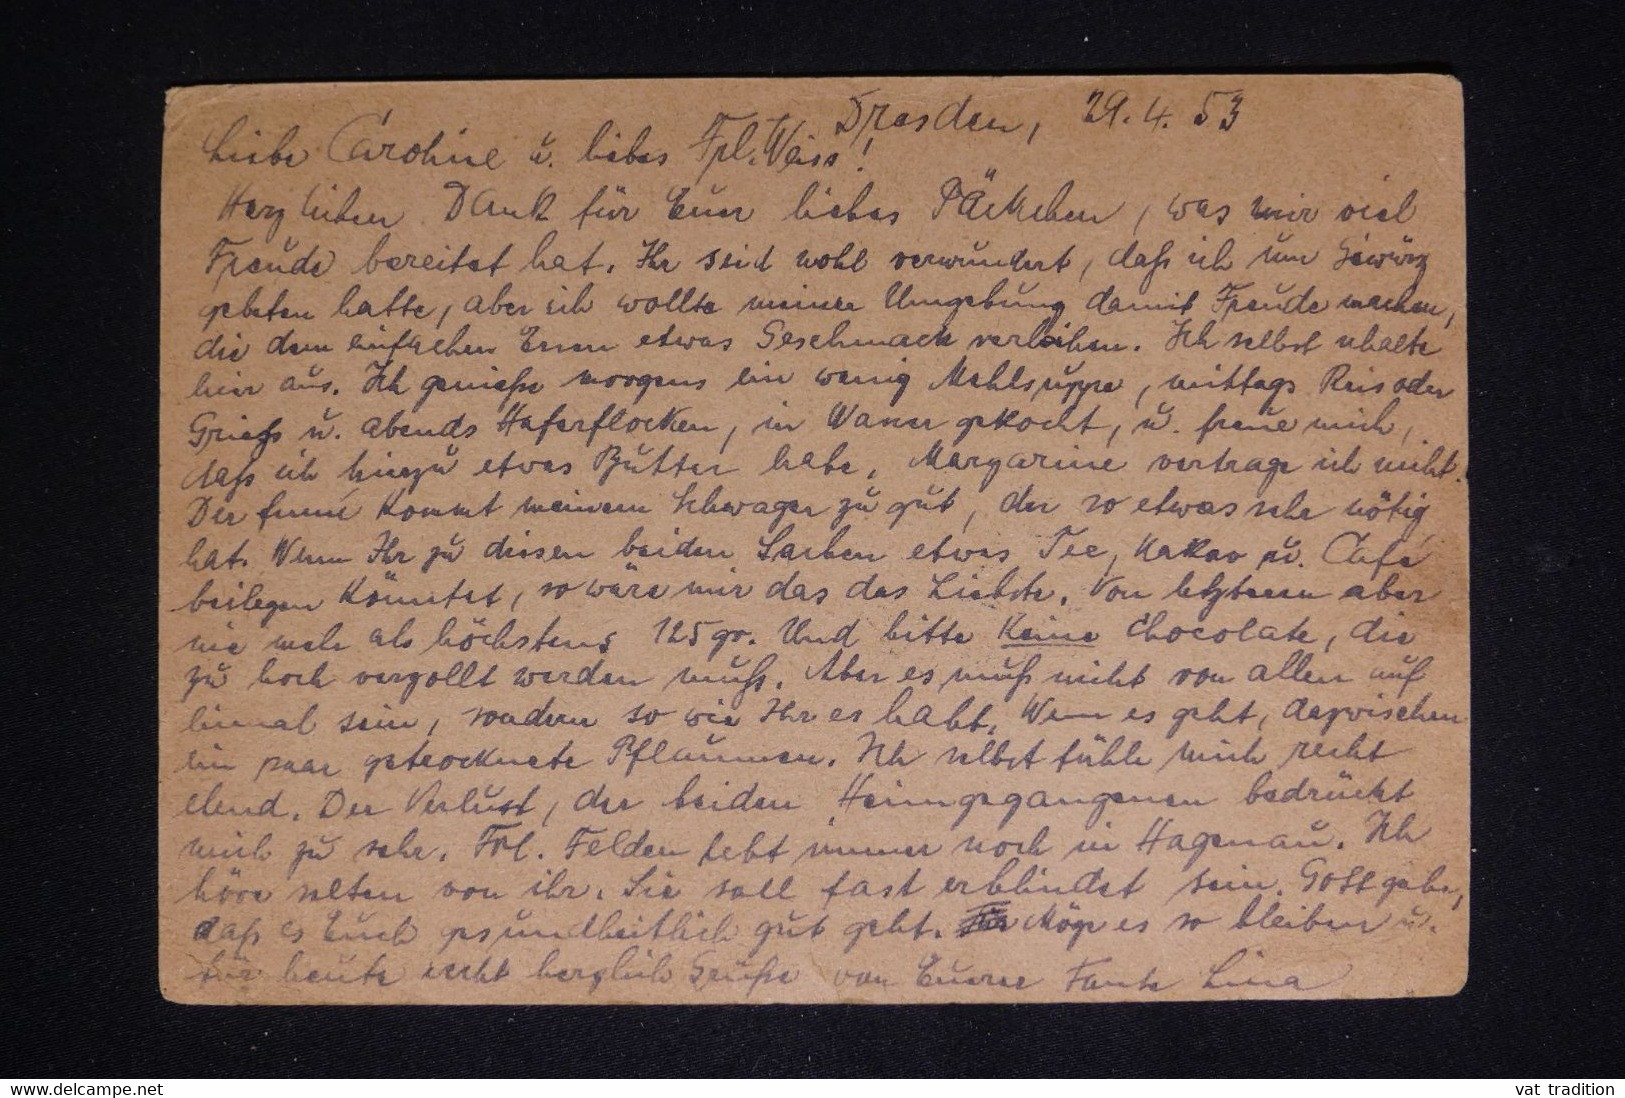 Dresden, 29.4.53
Liebe Caroline u. liebes Frl. Weiss!
Herzlichen Dank für Euer liebes Päckchen, was mir viel
Freude bereitet hat. Ihr seid wohl verwundert, daß ich um Gewürz
gebeten hatte, aber ich wollte meiner Umgebung damit Freude machen,
die dem einfachen Essen etwas Geschmack verleihen. Ich selbst schalte
hier aus. Ich genieße morgens ein wenig Mehlsuppe, mittags Reis oder
Grieß u. abends Haferflocken, in Wasser gekocht, u. freue mich,
daß ich hiezu etwas Butter habe. Margarine vertrage ich nicht.
Der kommt meinem Schwager zu gut, der so etwas sehr nötig
hat. Wenn Ihr zu diesen beiden Sachen etwas Tee, Kakao u. Café
beilegen könntet, so wäre mir das das Liebste. Von letzterem aber
nie mehr als höchstens 125 gr. Und bitte keine Chocolate, die
zu hoch verzollt werden muß. Aber es muß nicht von allen auf
einmal sein, sondern so wie Ihr es habt. Wenn es geht, dazwischen
ein paar getrocknete Pflaumen. Ich selbst fühle mich recht
elend. Der Verlust, der beiden Heimgegangenen bedrückt
mich zu sehr. Frl. Felden lebt immer noch in Hagenau. Ich
höre selten von ihr. Sie soll fast erblindet sein. Gott gebe,
daß es Euch gesundheitlich gut geht. Möge es so bleiben u.
für heute recht herzlich Grüße von Eurer Tante Lina
www.delcampe.net
vat tradition